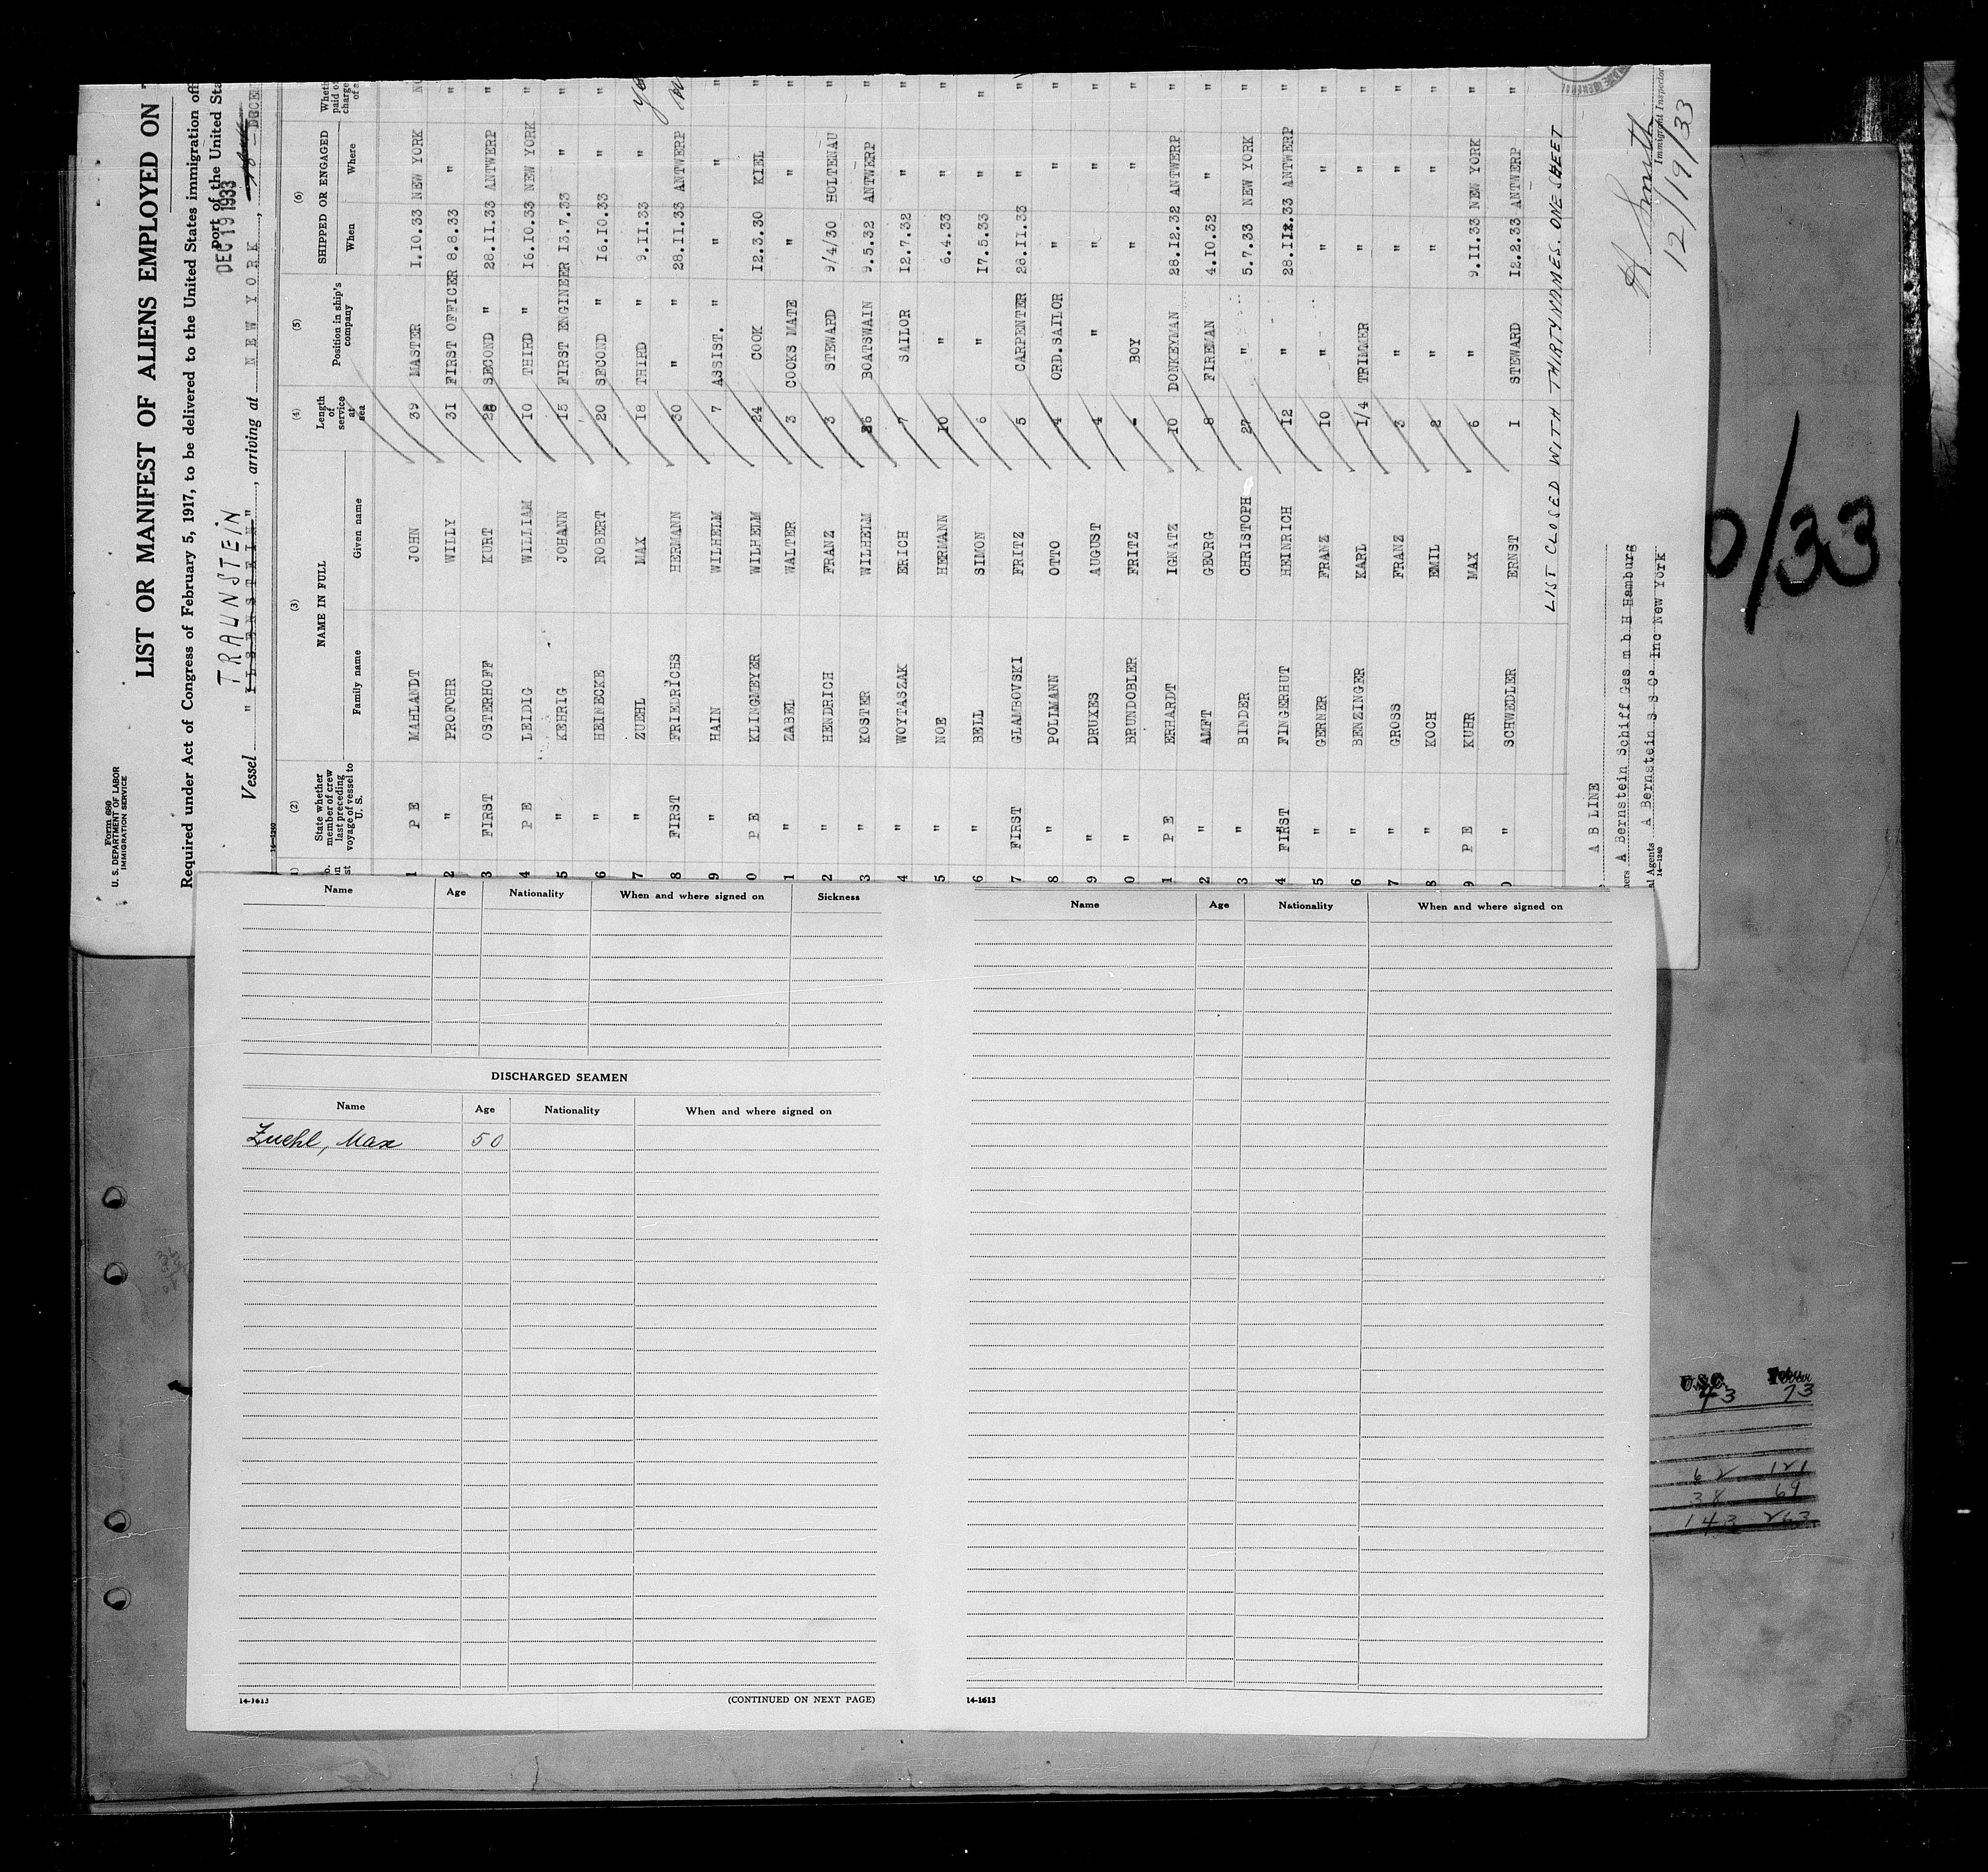 Form 680
U. S. DEPARTMENT OF LABOR
IMMIGRATION SERVICE
LIST OR MANIFEST OF ALIENS EMPLOYED ON
Required under Act of Congress of February 5, 1917, to be delivered to the United States immigration
Port of the United
DEC 19 1933
TRAUNSTEIN
Vessel " ILSENSTEIN ", arriving at NEW YORK,
14-1240
(2) (3) (4) (5) (6)
State whether member of crew last preceding voyage of vessel to U. S. NAME IN FULL Length of service at sea Position in ship's company SHIPPED OR ENGAGED
Family name Given name When Where
1 P E MAHLANDT JOHN 39 MASTER 1.10.33 NEW YORK
2 " PROFOHR WILLY 31 FIRST OFFICER 8.8.33 " "
3 FIRST OSTERHOFF KURT 28 SECOND " 28.11.33 ANTWERP "
4 P E LEIDIG WILLIAM 10 THIRD " 16.10.33 NEW YORK "
5 " KEHRIG JOHANN 15 FIRST ENGINEER 13.7.33 " "
6 " HEINECKE ROBERT 20 SECOND " 16.10.33 " "
7 " ZUEHL MAX 18 THIRD " 9.11.33 "
8 FIRST FRIEDRICHS HERMANN 30 " " 28.11.33 ANTWERP
9 " HAIN WILHELM 7 ASSIST. " " " "
0 P E KLINGMEYER WILHELM 24 COOK 12.3.30 KIEL "
1 " ZABEL WALTER 3 COOKS MATE " " "
2 " HENDRICH FRANZ 3 STEWARD 9/4/30 HOLTENAU "
3 " KOSTER WILHELM 26 BOATSWAIN 9.5.32 ANTWERP "
4 " WOYTASZAK ERICH 7 SAILOR 12.7.32 " "
5 " NOE HERMANN 10 " 6.4.33 " "
6 " BELL SIMON 6 " 17.5.33 " "
7 FIRST GLAMBOVSKI FRITZ 5 CARPENTER 28.11.33 " "
8 " POLLMANN OTTO 4 ORD.SAILOR " " "
9 " DRUXES AUGUST 4 " " " "
0 " BRUNDOBLER FRITZ - BOY " " "
1 P E ERHARDT IGNATZ 10 DONKEYMAN 28.12.32 ANTWERP "
2 " AMFT GEORG 8 FIREMAN 4.10.32 " "
3 " BINDER CHRISTOPH 27 " 5.7.33 NEW YORK "
4 FIRST FINGERHUT HEINRICH 12 " 28.11.33 ANTWERP "
5 " GERNER FRANZ 10 " " " "
6 " BENZINGER KARL 1/4 TRIMMER " " "
7 " GROSS FRANZ 3 " " " "
8 " KOCH EMIL 2 " " " "
9 P E KUHR MAX 6 " 9.11.33 NEW YORK "
0 " SCHWEDLER ERNST 1 STEWARD 12.2.33 ANTWERP "
LIST CLOSED WITH THIRTY NAMES. ONE SHEET
A B LINE
A Bernstein Schiff Ges m b H Hamburg
Agents A Bernstein S S Co. Inc New York
14-1240
H Smith
Immigrant Inspector
12/19/33
Name Age Nationality When and where signed on Sickness
DISCHARGED SEAMEN
Name Age Nationality When and where signed on
Zuehl, Max 50
14-1613 (CONTINUED ON NEXT PAGE)
Name Age Nationality When and where signed on
14-1613
0/33
U.S.C.
43 73
62 121
38 69
143 263